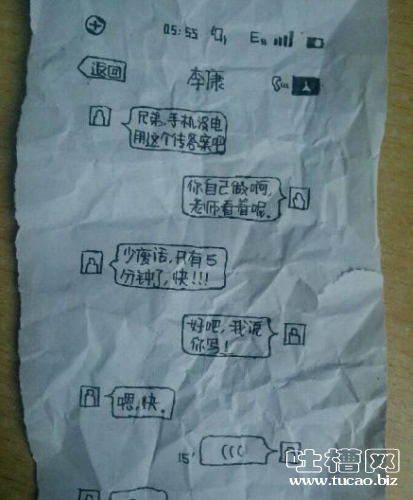 05:55 E
返回 李康
兄弟,手机没电
用这个传答案吧
你自己做啊,
老师看着呢。
少废话,只有5
分钟了,快!!!
好吧,我说
你写!
嗯,快.
15' (((
吐槽网
www.tucao.biz